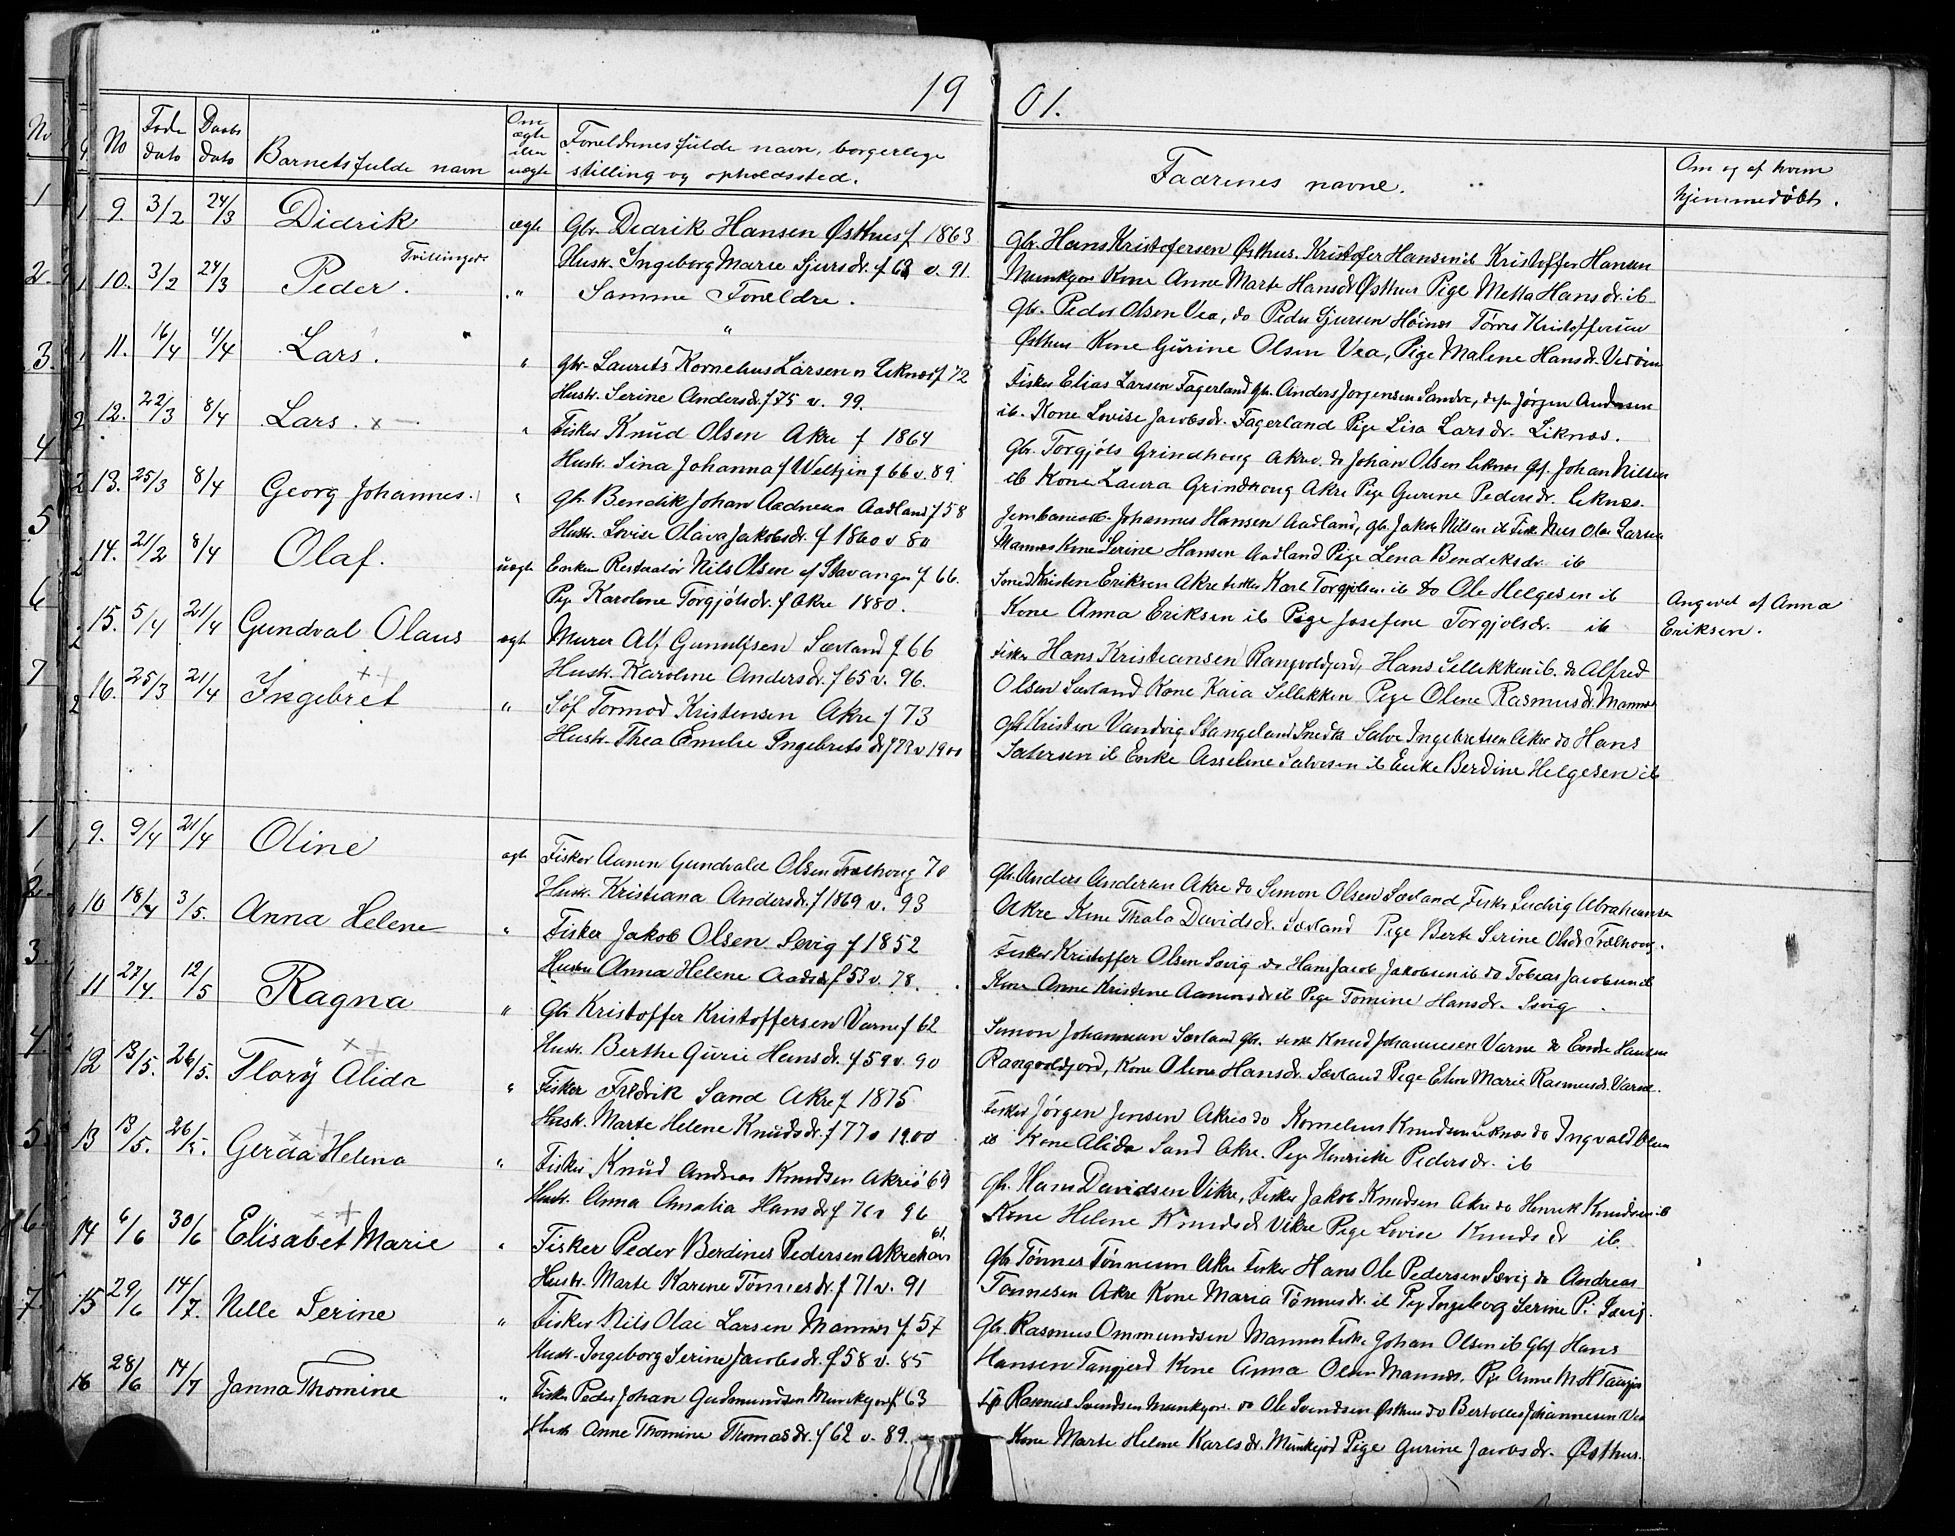 19 01.
No Føde dato Daabs dato Barnets fulde navn Om ægte eller uægte Foreldrenes fulde navn, borgerlige stilling og opholdssted. Fadrenes navne. Om og af hvem hjemmedøbt.
9. 3/2 24/3 Didrik ægte Gbr. Dedrik Hansen Østhus f 1863
Tvillinger Hustr. Ingeborg Marie Sjursdr. f 62 v. 91.
Gbr. Hans Kristofersen Østhus. Kristofer Hansen ib Kristoffer Hansen
Munkejor Kone Anne Marte Hansdr Østhus Pige Metta Hansdr. ib
10. 3/2 24/3 Peder. " Samme Foreldre.
Gbr. Peder Olsen Vea, do Peder Sjursen Høines Tørres Kristoffersen
Østhus Kone Gurine Olsen Vea, Pige Malene Hansdr.
11. 16/4 4/4 Lars. " Gbr. Laurits Kornelius Larsen Leknes f 72
Hustr. Serine Andersdr. f 75 v. 99.
Fisker Elias Larsen Fagerland Gbr. Anders Jørgensen Sandve, Jørgen Andersen
ib. Kone Lovise Jacobsdr. Fagerland Pige Lisa Larsdr. Liknes.
12. 22/3 8/4 Lars. " Fisker Knud Olsen Akre f 1864
Hustr. Sina Johanna f Weltzin f 66 v. 89.
Gbr. Torgjøls Grindhoug Akre. do Johan Olsen Leknes Johan Nilsen
ib Kone Laura Grindhoug Akre Pige Gurine Pedersdr. Leknes.
13. 25/3 8/4 Georg Johannes. " Gbr. Bendik Johan Aadnesen Aadland f 58
Hustr. Lovise Olava Jakobsdr. f 1860 v 80
Johannes Hansen Aadland, Gbr. Jakob Nilsen ib Fisk. Nils Olai Larsen
Mannes Kone Serine Hansen Aadland Pige Lena Bendeksdr. ib
14. 21/2 8/4 Olaf. uægte Nils Olsen af Stavanger f 66.
Pige Karoline Torgjølsdr. f Akre 1880.
Kristen Eriksen Akre fisker Karl Torgjølsen ib do Ole Helgesen ib
Kone Anna Eriksen ib Pige Josefine Torgjolsdr. ib
Angivet af Anna
Eriksen.
15. 5/4 21/4 Gundval Olaus ægte Murer Alf Gunulfsen Sævland f 66
Hustr. Karoline Andersdr. f 65 v. 96.
Fisker Hans Kristiansen Rangvoldjord, Hans Sellekken ib. do Alfred
Olsen Sævland Kone Kaia Sellekken Pige Olene Rasmusdr. Mannes
16. 25/3 21/4 Ingebret " Søf Tormod Kristensen Akre f 73
Hustr. Thea Emelie Ingebretsdr f 73 v 1900
Gbr Kristen Vandvig Stangeland Snedk Salve Ingebretsen Akre do Hans
Salvesen ib Enke Asseline Salvesen ib Enke Berdine Helgesen ib
9. 9/4 21/4 Oline ægte Fisker Aanen Gundvald Olsen Trælhoug 70
Hustr. Kristiana Andersdr. f 1869 v. 93
Gbr. Anders Andersen Akre do Simon Olsen Sævland, Fisk. Ludvig Abrahamsen
Akre Kone Thala Davidsdr. Sævland Pige Berte Serine Olsdr Trælhoug.
10 18/4 3/5. Anna Helene " Fisker Jakob Olsen Sevig f 1852
Hustru Anna Helene Aadsdr f 53 v. 78.
Fisker Kristoffer Olsen Sævig do Hans Jacob Jakobsen ib do Tobias Jacobsen ib
Kone Anne Kristine Aanensdr ib Pige Tomine Hansdr. Sævig
11 27/4. 12/5 Ragna " Gbr Kristoffer Kristoffersen Varne f 62
Hustr. Berthe Gurie Hansdr. f 59 v. 90
Simon Johannesen Sævland Gbr. Fisk Knud Johannesen Varne do Endre Hansen
Rangvoldjord, Kone Olene Hansdr. Sævland Pige Elen Marie Rasmusdr. Varne.
12 13/5. 26/5. Flory Alida " Fisker Fredrik Sand Akre f 1875
Hustr. Marte Helene Knudsdr. f 77 v 1900
Fisker Jørgen Jensen Akre do Kornelius Knudsen Leknes do Ingvald Olsen
ib Kone Alida Sand Akre. Pige Henrikke Pedersdr. ib
13 13/5. 26/5. Gerda Helena " Fisker Knud Andreas Knudsen Akre 69
Hustr. Anna Amalia Hansdr f 71 v 96
Gbr. Hans Davidsen Vikre, Fisker Jakob Knudsen Akre do Henrik Knudsen ib
Kone Helene Knudsdr Vikre Pige Lovise Knudsdr ib.
14 6/6 30/6 Elisabet Marie " Fisker Peder Berdines Pedersen Akrehavn 61.
Hustr. Marte Karine Tønnesdr. f 71 v. 91
Gbr Tønnes Tønnesen Akre Fisker Hans Ole Pedersen Sævig do Andreas
Tønnesen Akre Kone Maria Tønnesdr. ib Pige Ingeborg Serine P. Sævig.
15 29/6 14/7. Nelle Serine " Fisker Nils Olai Larsen Mannes f 57
Hustr. Ingeborg Serine Jacobsdr. f 58 v. 85
Gbr. Rasmus Ommundsen Mannes Fisk. Johan Olsen ib Gbf Hans
Hansen Tangjerd Kone Anna Olsen Mannes. Pige Anne M H Tangjer
16 28/6 14/7 Janna Thomine " Fisker Peder Johan Gudmundsen Munkejor f 63
Hustr Anne Thomine Thomasdr. f 62 v. 89.
Rasmus Svendsen Munkejor. do Ole Svendsen Østhus do Johannesen Vea
Kone Marte Helene Karlsdr. Munkejord Pige Gurine Jacobsdr. Østhus.